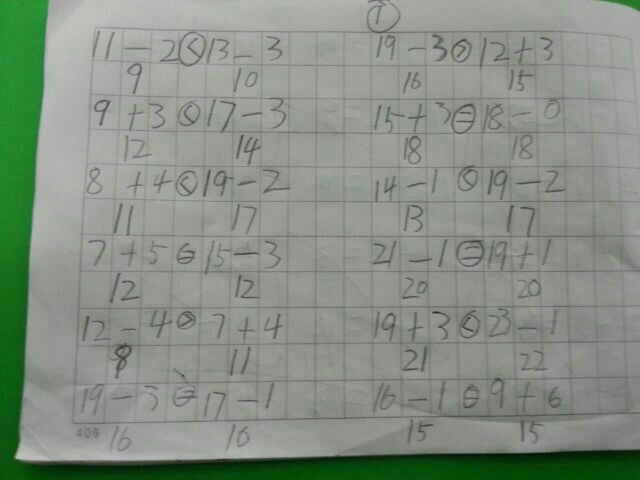 ①
11 - 2 < 13 - 3 19 - 3 > 12 + 3
9 10 16 15
9 + 3 < 17 - 3 15 + 3 = 18 - 0
12 14 18 18
8 + 4 < 19 - 2 14 - 1 < 19 - 2
11 17 13 17
7 + 5 = 15 - 3 21 - 1 = 19 + 1
12 12 20 20
12 - 4 > 7 + 4 19 + 3 < 23 - 1
8 11 21 22
19 - 3 = 17 - 1 16 - 1 = 9 + 6
406 16 16 15 15